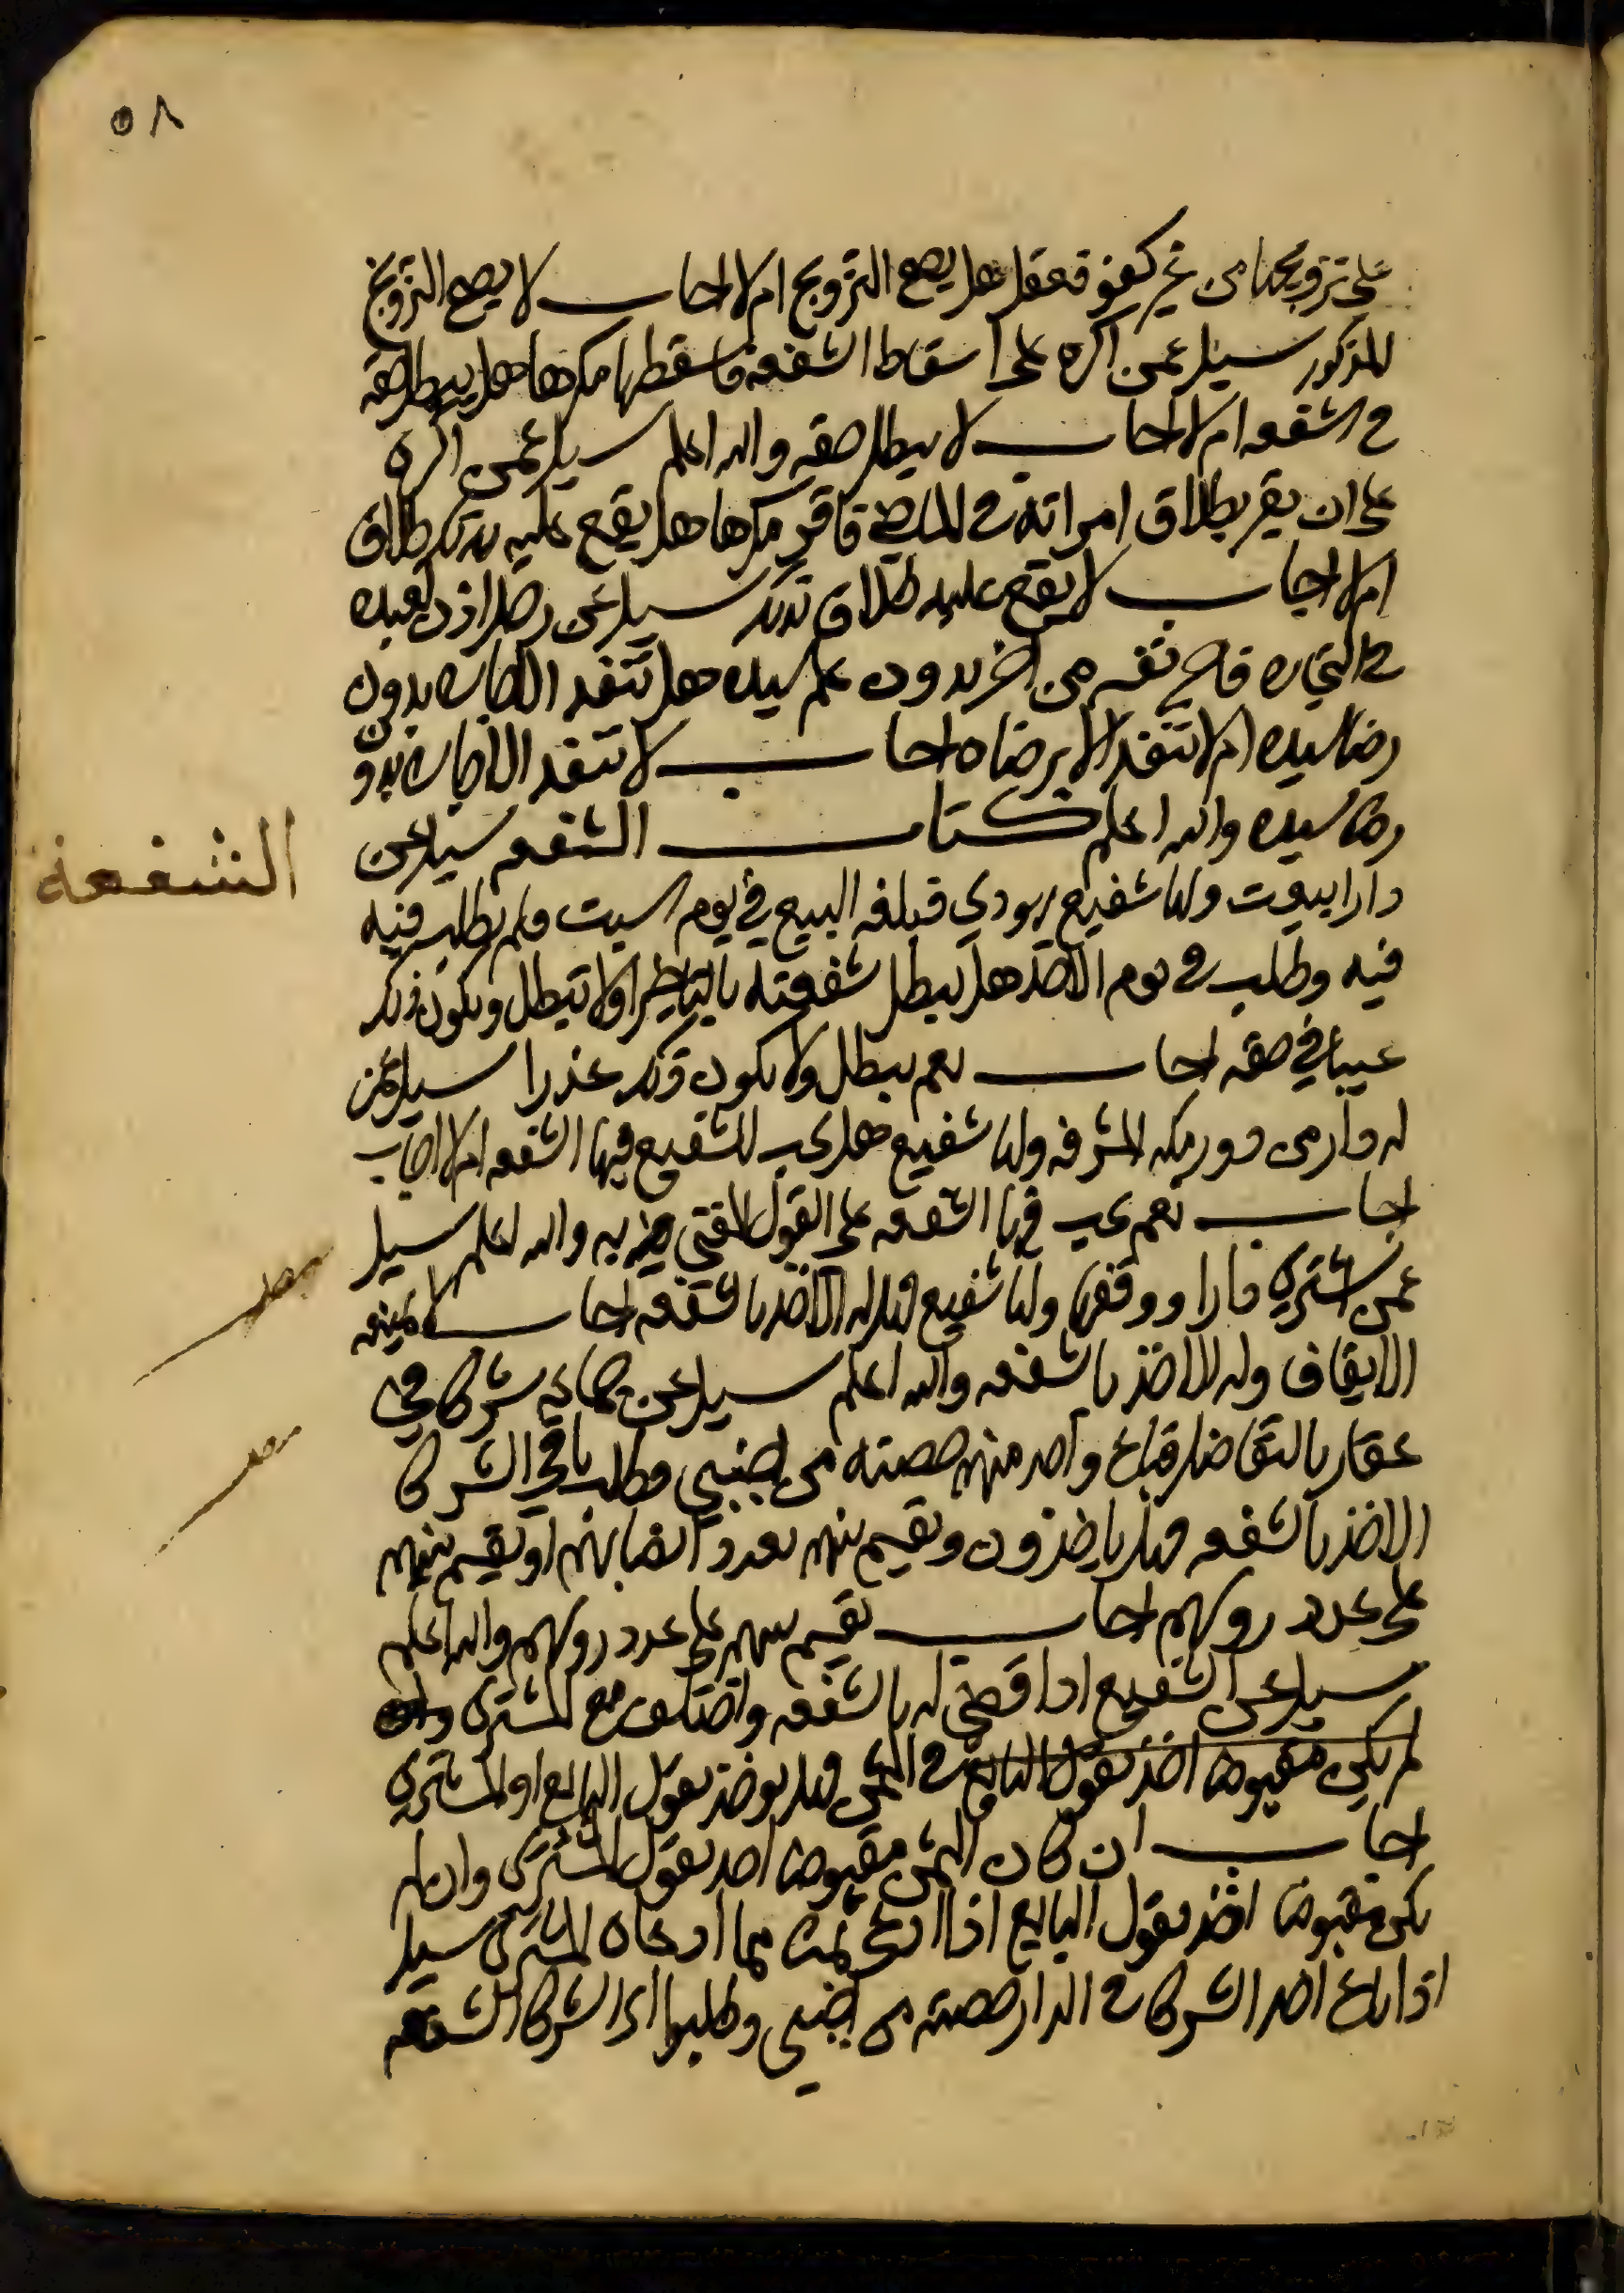 ٥٨
على تزويجها من غير كفو ففعل هل يصح التزويج ام لا اجاب لا يصح التزويج
المذكور سيل عمن اكره على اسقاط الشفعة فاسقطها مكرها هل يبطل حقه
في الشفعه ام لا اجاب لا يبطل حقه والله اعلم سيل عمن اكره
على ان يقر بطلاق امراته في الماضي فاقر مكرها هل يقع عليه بذلك طلاق
ام لا اجاب لا يقع عليه طلاق بذلك سيل عن رجل اذن لعبده
في التجاره فاجر نفسه من اخر بدون علم سيده هل تنفد الاجاره بدون
رضا سيده ام لا تنفد الا برضاه اجاب لا تنفد الاجاره بدون
رضا سيده والله اعلم كتاب الشفعه سيل عن
الشفعة
دار ابيعت ولها شفيع يهودي فبلغه البيع في يوم السبت ولم يطلب فيه
فيه وطلب في يوم الاحد هل يبطل شفعته بالتاخير او لا تبطل ويكون ذلك
عيبا في حقه اجاب نعم يبطل ولا يكون ذلك عذرا سيل عمن
له دار من دور مكه المشرفه ولها شفيع هل يجب للشفيع فيها الشفعه ام لا اجاب
اجاب نعم يجب فيها الشفعه على القول المفتى به والله اعلم سيل
عمن اشترى دارا ووقفها ولها شفيع فهل له الاخذ بالشفعه اجاب لا يمنعه
الايقاف وله الاخذ بالشفعه والله اعلم سيل عن جماعه شركا في
عقار بالتفاضل فباع واحد منهم حصته من اجنبي وطلب باقي الشركا
الاخذ بالشفعه فهل ياخذون ويقسم بينهم بعدد انصبائهم او يقسم بينهم
على عدد روسهم اجاب يقسم بينهم على عدد روسهم والله اعلم
سيل عن الشفيع اذا قضي له بالشفعه واختلف مع المشتري
لم يكن مقبوضا اخذ بقول البايع في الثمن فهل يوخذ بقول البايع او المشتري
اجاب ان كان الثمن مقبوضا اخذ بقول المشتري وان لم
يكن مقبوضا اخذ بقول البايع اذا ادعى مما ادعاه المشتري سيل
اذا باع احد الشركا في الدار حصته من اجنبي وطلبوا الشركا الشفعه